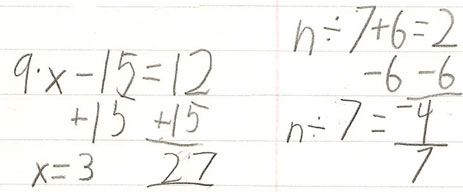 9·x-15=12
+15 +15
x=3 27
n÷7+6=2
-6 -6
n÷7=-4
7